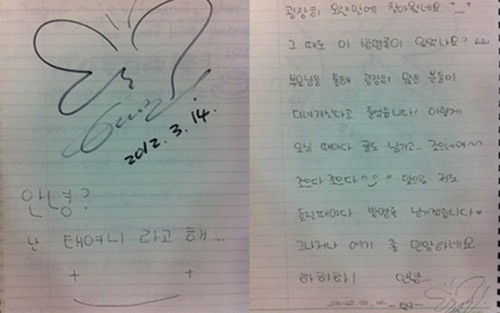 2012. 3. 14.
안녕?
난 태여니 라고 해...
굉장히 오랜만에 찾아왔네요 ^_^
그 때도 이 방명록이 있었나요?
부모님을 통해 굉장히 많은 분들이
다녀가신다고 들었습니다! 이렇게
오실 때마다 글도 남기고... 좋으네여~~
좋으다 좋으다 ^^ 앞으로 저도
들릴때마다 방명록 남기겠습니다♥
그나저나 여기 좀 민망하네요
하하하! 안녕...